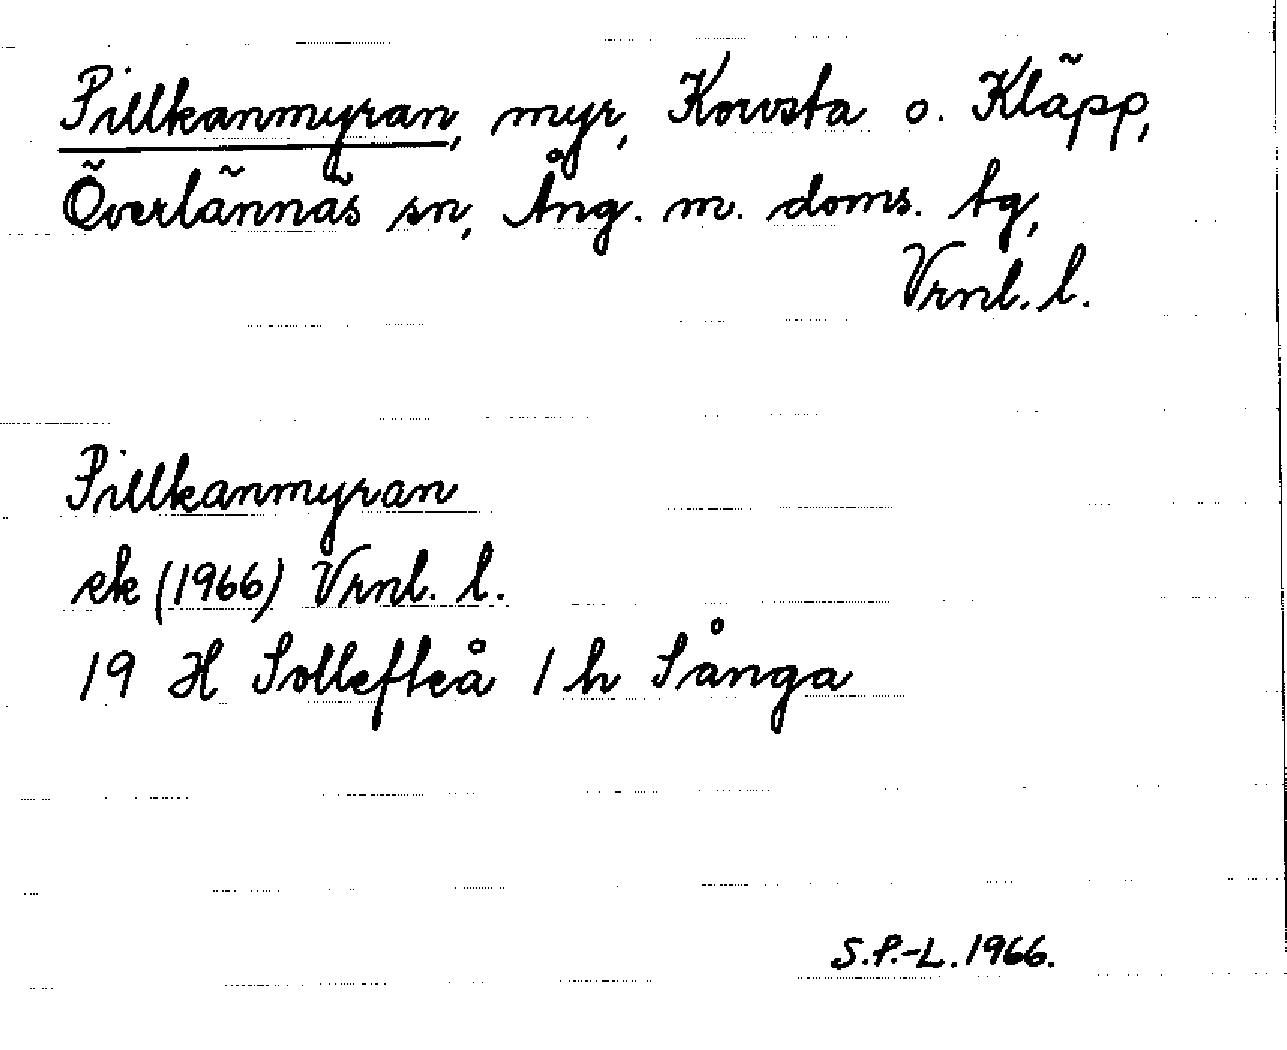 Pillkanmyran, myr, Korvsta o. Kläpp,
Överlännäs sn, Ång. m. doms. tg,
Vrnl. l.
Pillkanmyran
ek (1966) Vrnl. l.
19 H Sollefteå 1 h Sånga
S.P.-L. 1966.